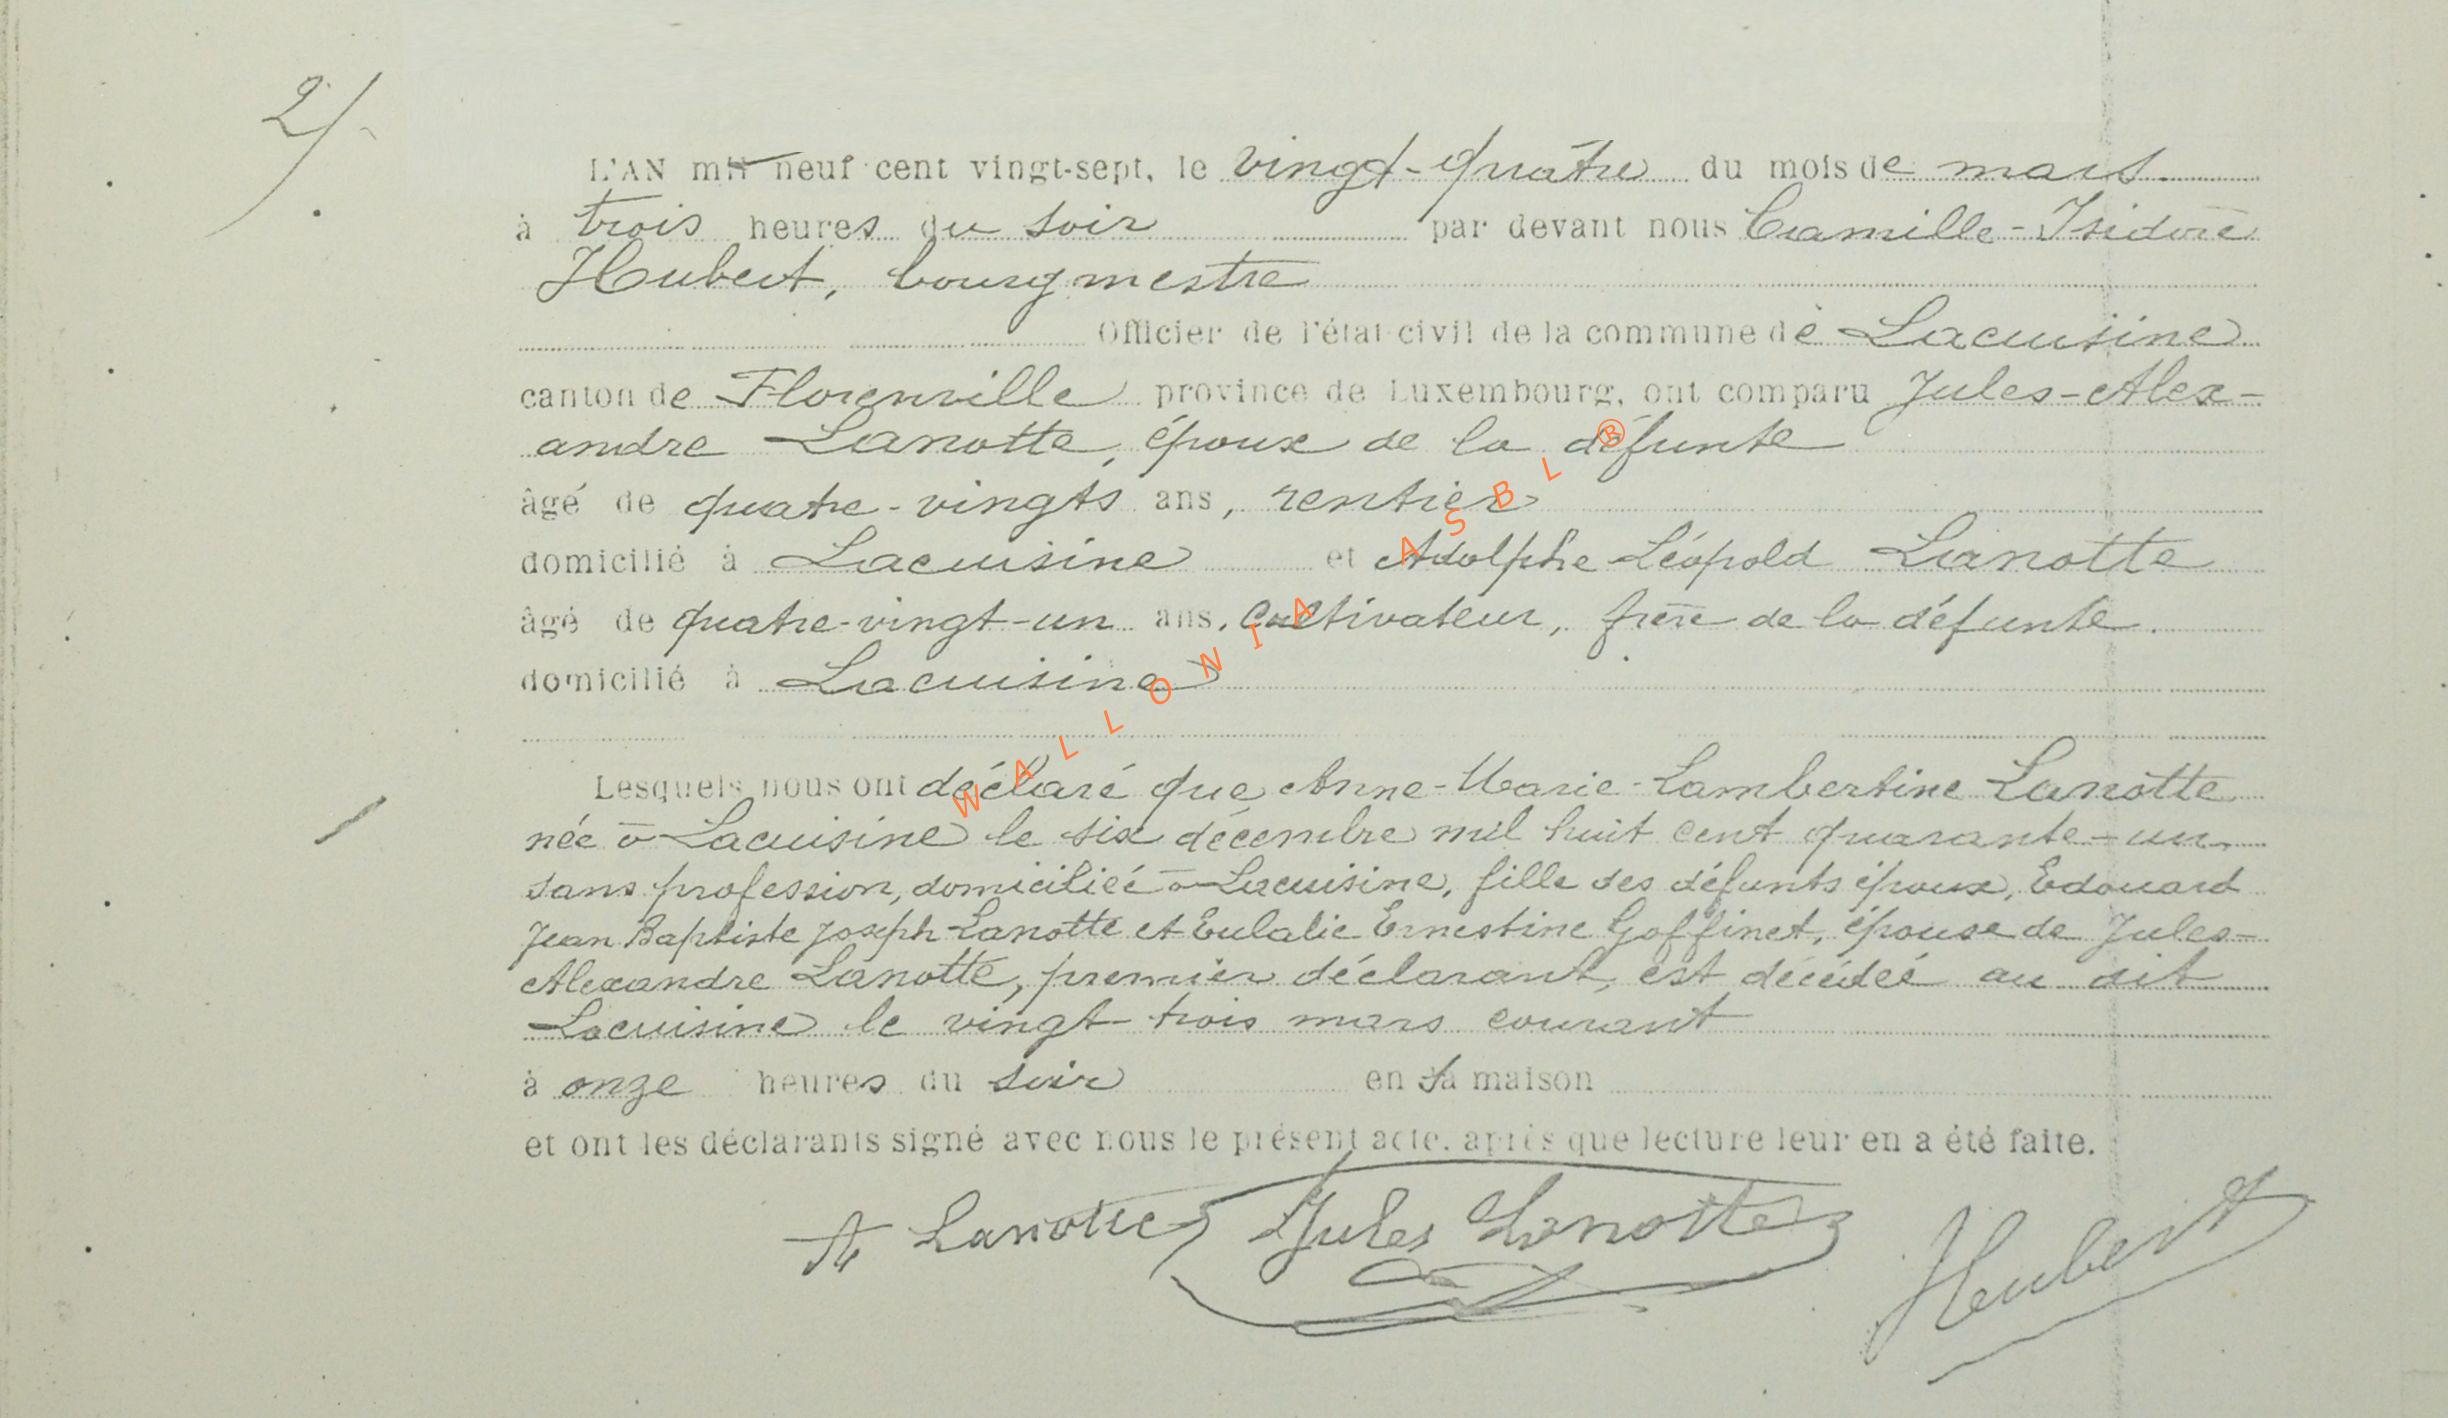 2/.
L'AN mil neuf cent vingt-sept, le vingt-quatre du mois de mars
à trois heures du soir par devant nous Camille-Isidore
Hubert, bourgmestre
Officier de l'état civil de la commune de Lacuisine
canton de Florenville province de Luxembourg, ont comparu Jules-Alex-
andre Lanotte, époux de la défunte
âgé de quatre-vingts ans, rentier
domicilié à Lacuisine et Adolphe Léopold Lanotte
âgé de quatre-vingt-un ans, cultivateur, frère de la défunte.
domicilié à Lacuisine
Lesquels nous ont déclaré que Anne-Marie-Lambertine Lanotte
née à Lacuisine le six décembre mil huit cent quarante-un
sans profession, domiciliée à Lacuisine, fille des défunts époux, Edouard
Jean Baptiste Joseph Lanotte et Eulalie Ernestine Goffinet, épouse de Jules-
Alexandre Lanotte, premier déclarant, est décédée au dit
Lacuisine le vingt-trois mars courant
à onze heures du soir en sa maison
et ont les déclarants signé avec nous le présent acte, après que lecture leur en a été faite.
A Lanotte Jules Lanotte Hubert
WALLONIA ASBL ®